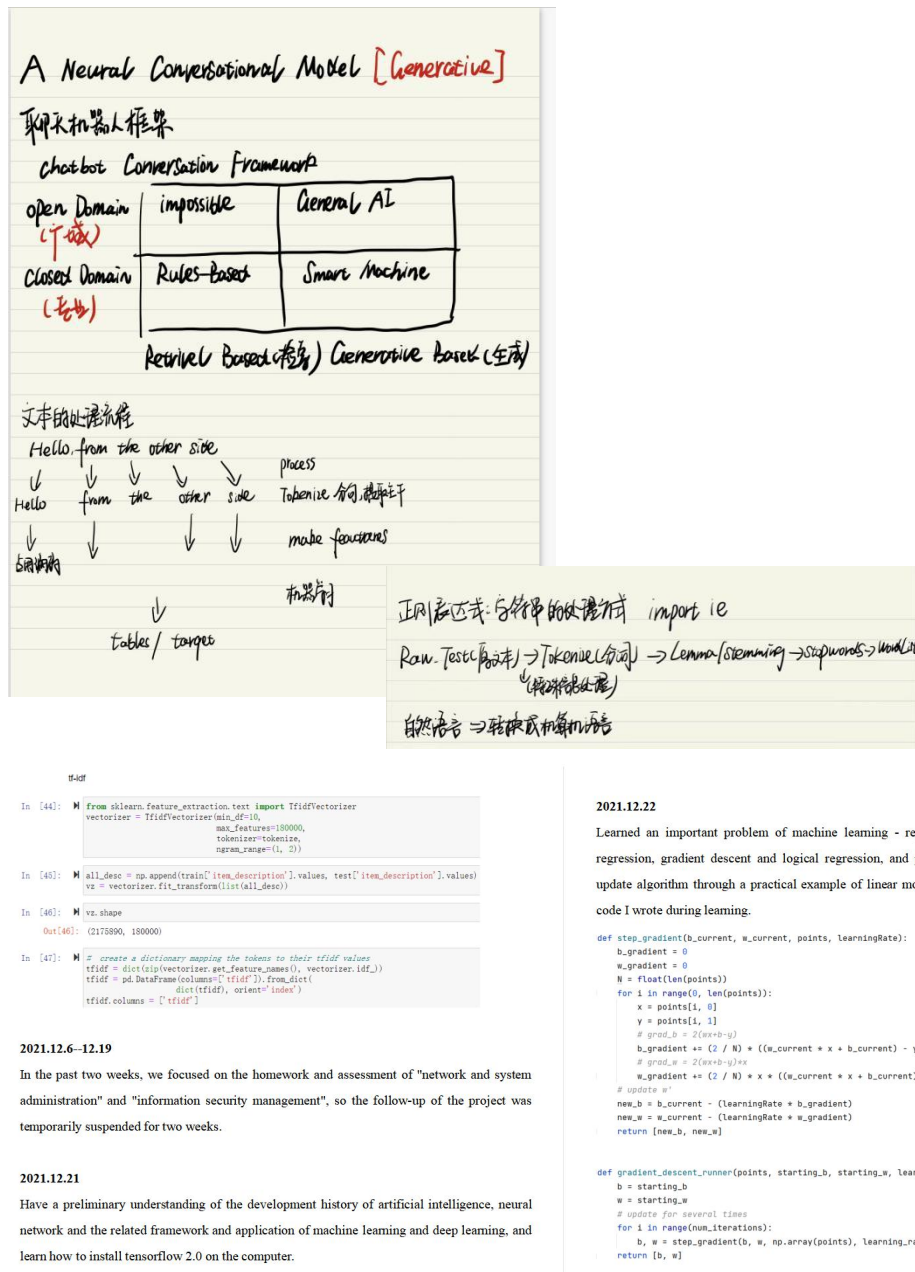 A Neural Conversational Model [Generative]
聊天机器人框架
Chatbot Conversation Framework
open Domain
impossible
General AI
Closed Domain
Rules-Based
Smart Machine
Retrivel Based (检索) Generative Based (生成)
文本的处理流程
Hello, from the other side
process
Hello from the other side
Tokenize 分词,提取主干
make
机器学习
tables/ target
正则表达式:字符串的处理方式 import ie
Raw_Test(原文本) → Tokenize(分词) → Lemma/Stemming → stopwords →
(特殊符号处理)
自然语言 ⇒ 转换成计算机语言
tf-idf
In [44]: from sklearn.feature_extraction.text import TfidfVectorizer
vectorizer = TfidfVectorizer(min_df=10,
max_features=180000,
tokenizer=tokenize,
ngram_range=(1, 2))
In [45]: all_desc = np.append(train['item_description'].values, test['item_description'].values)
vz = vectorizer.fit_transform(list(all_desc))
In [46]: vz.shape
Out[46]: (2175890, 180000)
In [47]: # create a dictionary mapping the tokens to their tfidf values
tfidf = dict(zip(vectorizer.get_feature_names(), vectorizer.idf_))
tfidf = pd.DataFrame(columns=['tfidf']).from_dict(
dict(tfidf), orient='index')
tfidf.columns = ['tfidf']
2021.12.6--12.19
In the past two weeks, we focused on the homework and assessment of "network and system
administration" and "information security management", so the follow-up of the project was
temporarily suspended for two weeks.
2021.12.21
Have a preliminary understanding of the development history of artificial intelligence, neural
network and the related framework and application of machine learning and deep learning, and
learn how to install tensorflow 2.0 on the computer.
2021.12.22
Learned an important problem of machine learning - re
regression, gradient descent and logical regression, and
update algorithm through a practical example of linear mo
code I wrote during learning.
def step_gradient(b_current, w_current, points, learningRate):
b_gradient = 0
w_gradient = 0
N = float(len(points))
for i in range(0, len(points)):
x = points[i, 0]
y = points[i, 1]
# grad_b = 2(wx+b-y)
b_gradient += (2 / N) * ((w_current * x + b_current) - y
# grad_w = 2(wx+b-y)*x
w_gradient += (2 / N) * x * ((w_current * x + b_current)
# update w'
new_b = b_current - (learningRate * b_gradient)
new_w = w_current - (learningRate * w_gradient)
return [new_b, new_w]
def gradient_descent_runner(points, starting_b, starting_w, lear
b = starting_b
w = starting_w
# update for several times
for i in range(num_iterations):
b, w = step_gradient(b, w, np.array(points), learning_ra
return [b, w]